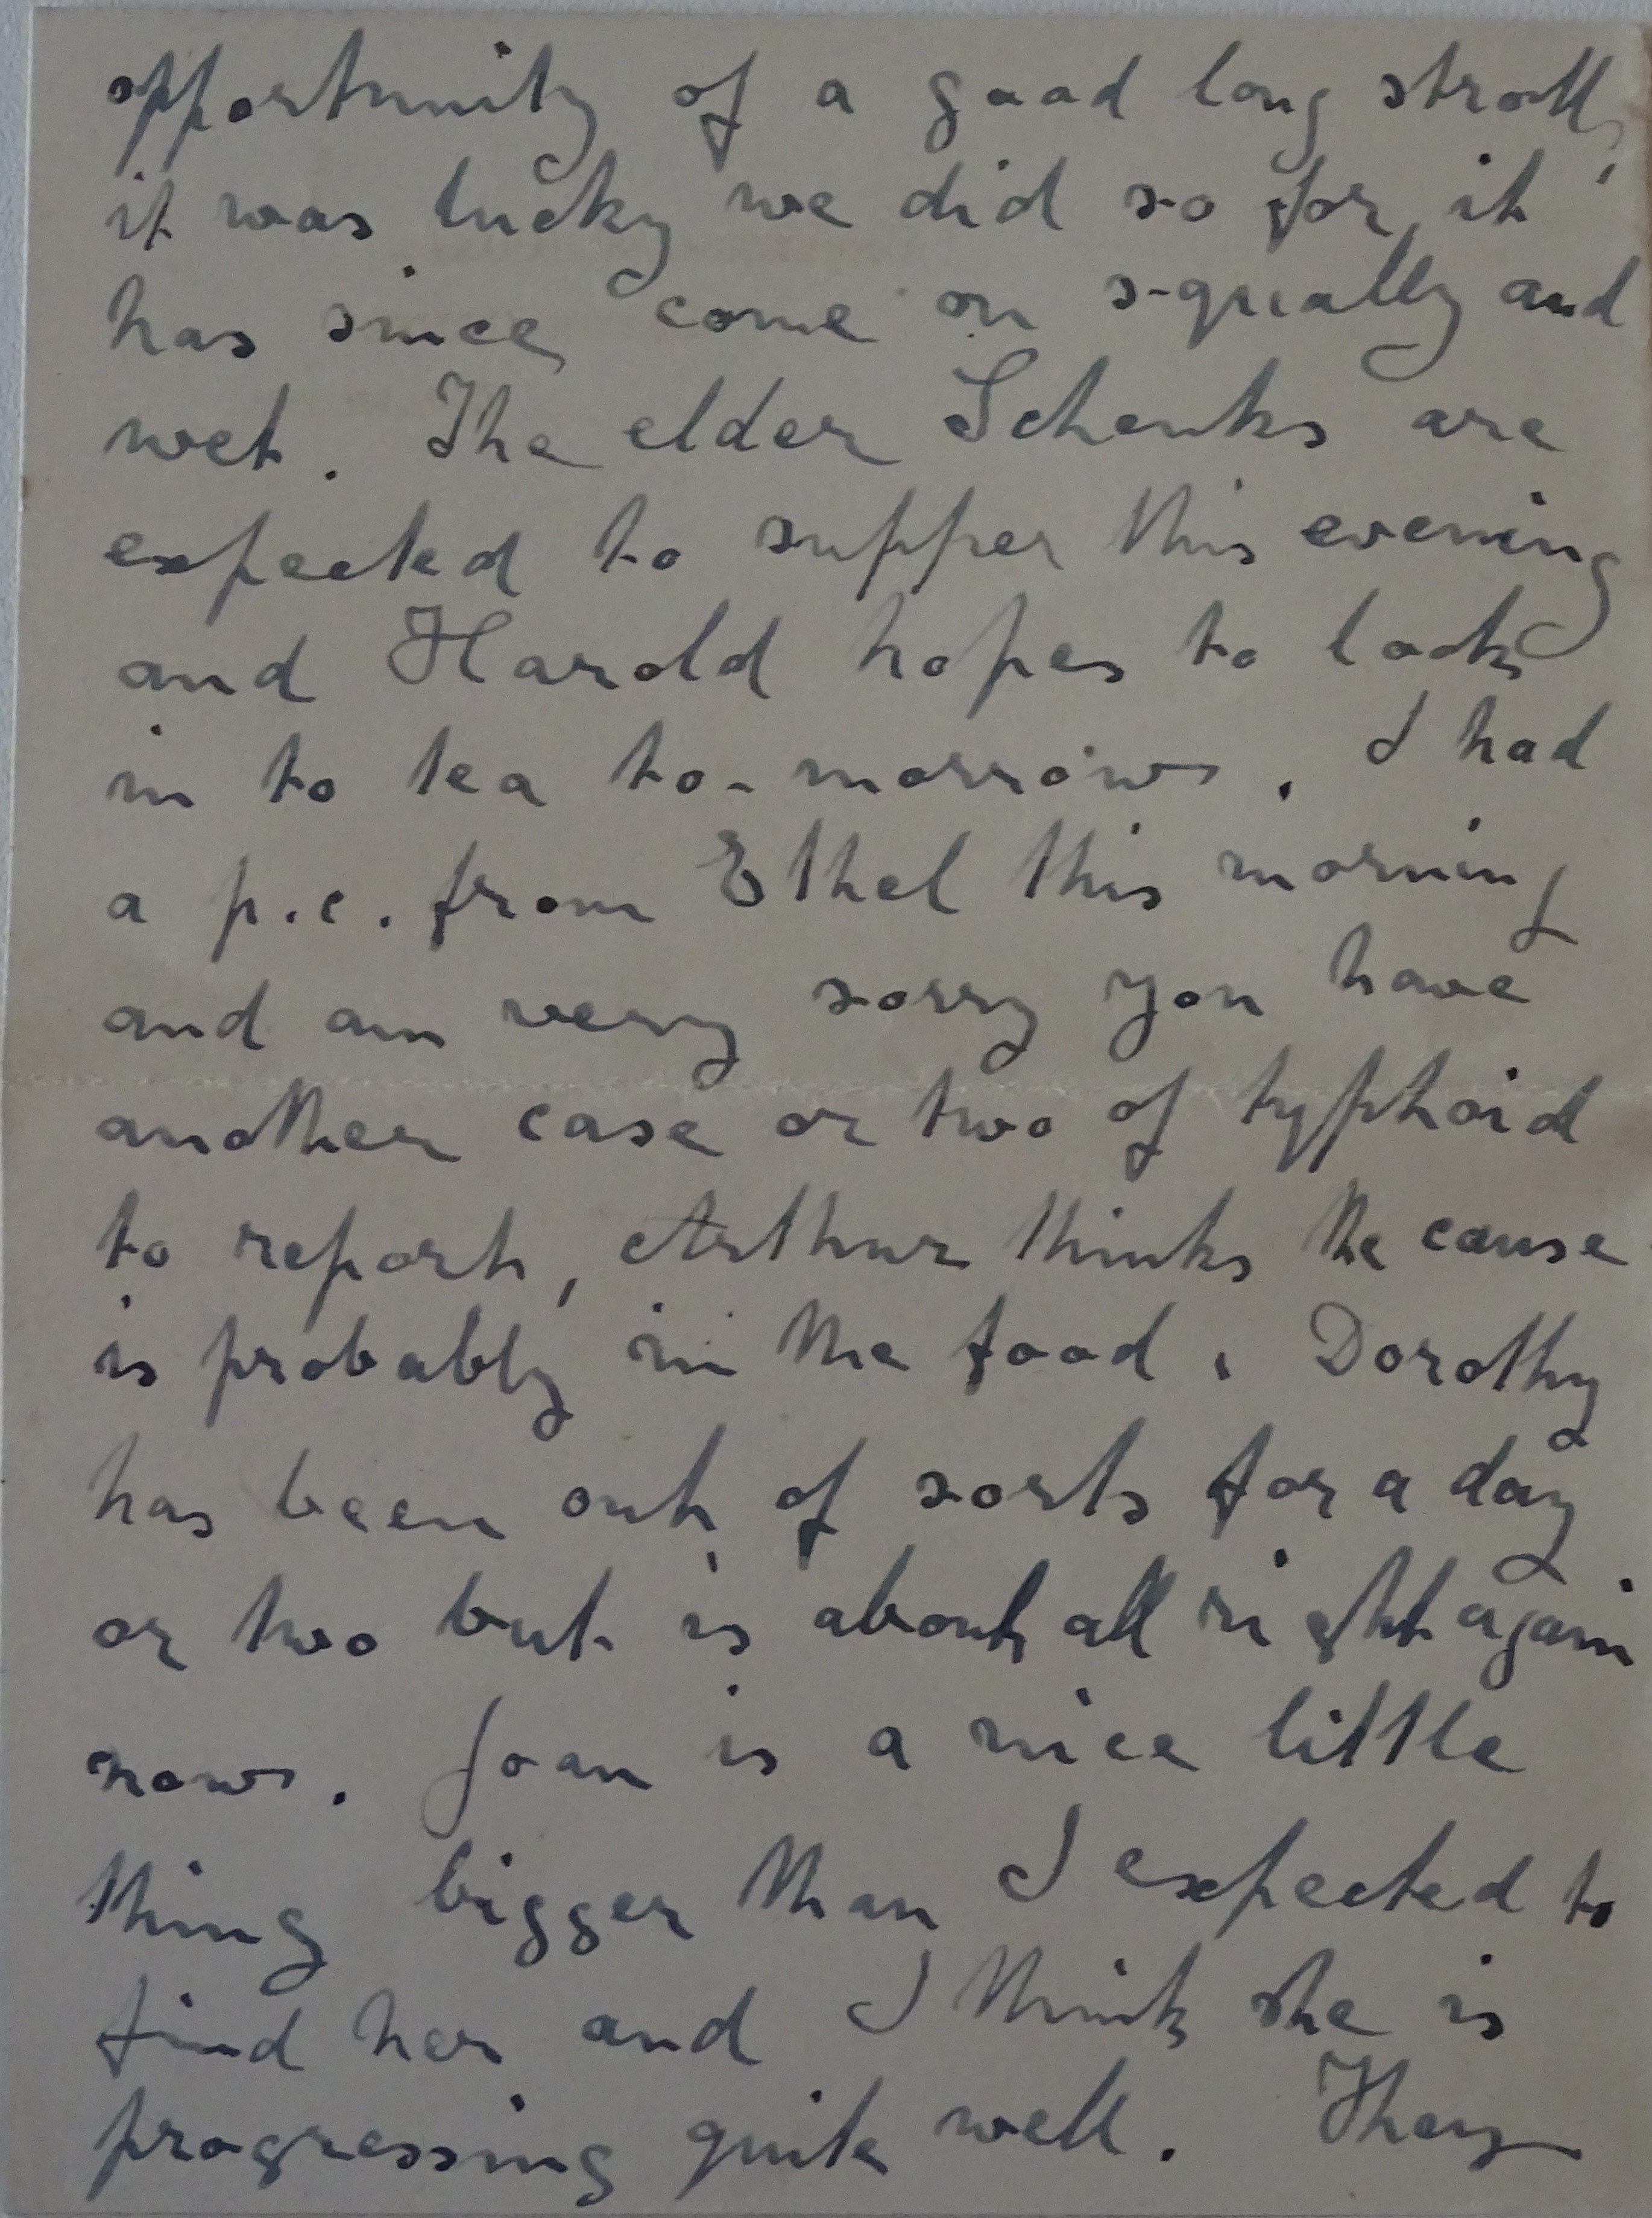 opportunity of a good long stroll,
it was lucky we did so for it
has since come on squally and
wet. The elder Schenks are
expected to supper this evening
and Harold hopes to look
in to tea to-morrow. I had
a p.c. from Ethel this morning
and am very sorry you have
another case or two of typhoid
to report, Arthur thinks the cause
is probably in the food. Dorothy
has been out of sorts for a day
or two but is about all right again
now. Joan is a nice little
thing bigger than I expected to
find her and I think she is
progressing quite well. They